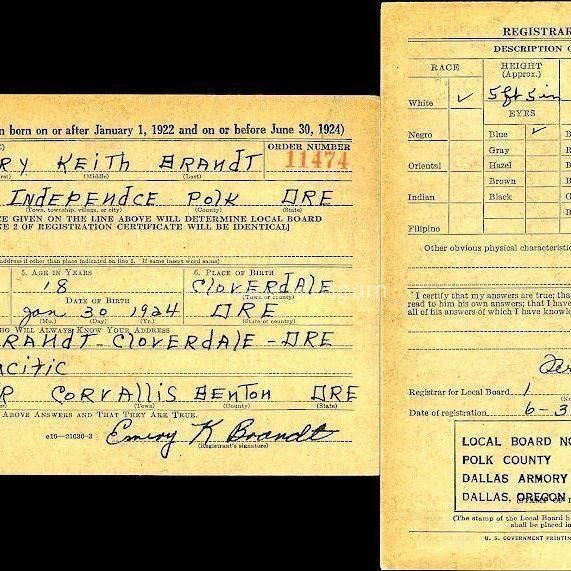 n born on or after January 1, 1922 and on or before June 30, 1924)
ORDER NUMBER
RY KEITH BRANDT 11474
(Middle) (Last)
INDEPENDCE POLK ORE
(Town, township, village, or city) (County) (State)
E GIVEN ON THE LINE ABOVE WILL DETERMINE LOCAL BOARD
E 2 OF REGISTRATION CERTIFICATE WILL BE IDENTICAL]
address if other than place indicated on line 2. If same insert word same)
5. AGE IN YEARS
18
DATE OF BIRTH
Jan 30 1924
(Mo.) (Day) (Yr.)
6. PLACE OF BIRTH
CLOVERDALE
(Town or county)
ORE
(State or country)
HO WILL ALWAYS KNOW YOUR ADDRESS
RANDT-CLOVERDALE-ORE
ACIFIC
R CORVALLIS BENTON ORE
(Town) (County) (State)
ABOVE ANSWERS AND THAT THEY ARE TRUE.
c16—21630-3 Emery K Brandt
(Registrant's signature)
REGISTRAR
DESCRIPTION O
RACE
HEIGHT
(Approx.)
White ✓ 5 ft 5 in
EYES
Negro
Blue ✓
Gray
Oriental
Hazel
Brown
Indian
Black
Filipino
Other obvious physical characteristic
I certify that my answers are true; that
read to him his own answers; that I have
all of his answers of which I have knowl
Registrar for Local Board 1
Date of registration 6-3
LOCAL BOARD NO
POLK COUNTY
DALLAS ARMORY
DALLAS, OREGON
(The stamp of the Local Board h
shall be placed in
U. S. GOVERNMENT PRINTIN